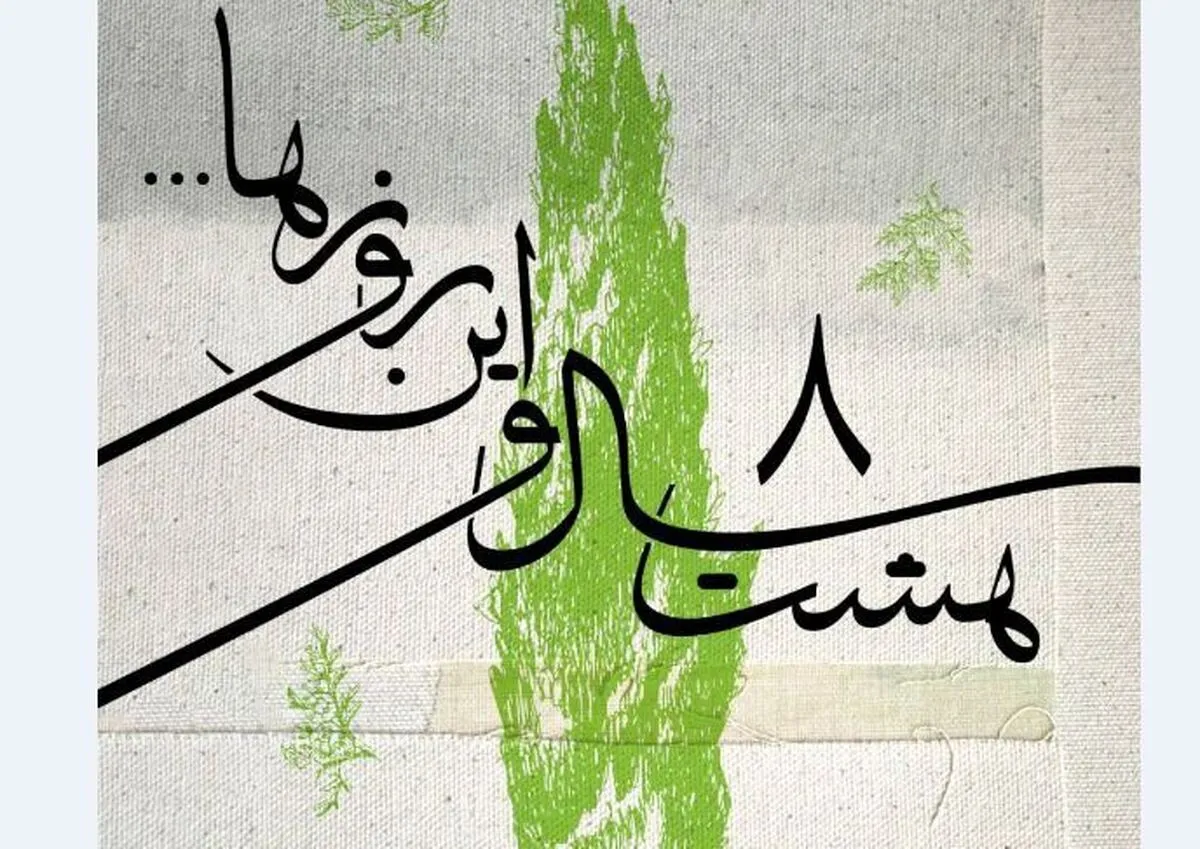 ۸
هشت سال و این روزها...